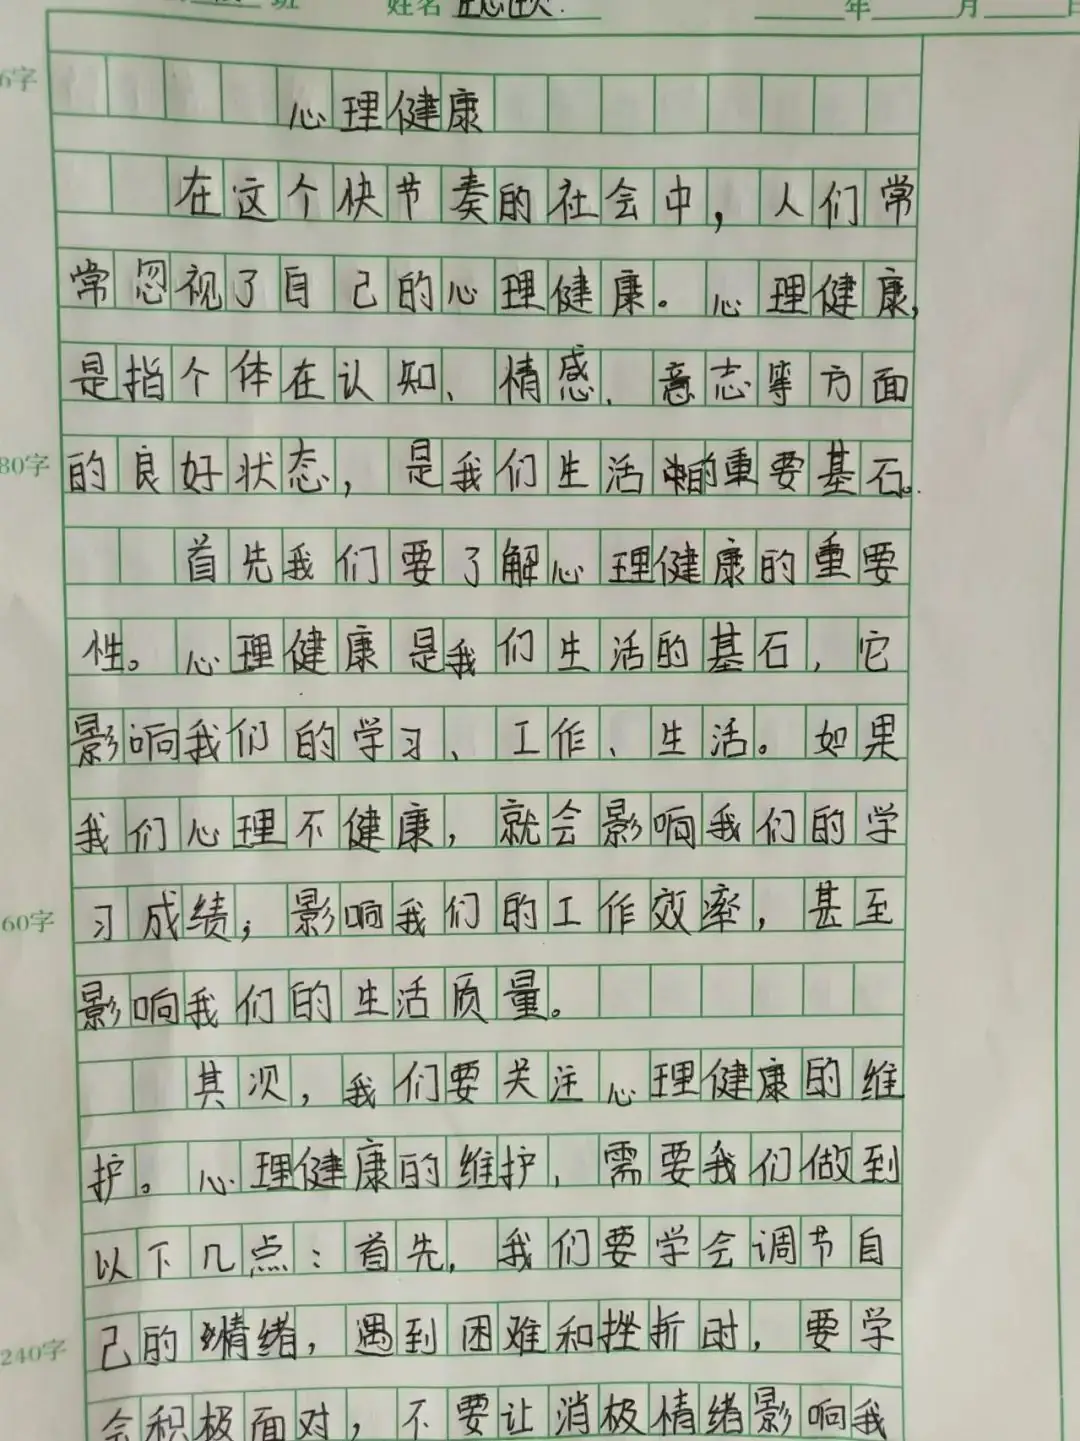 班 姓名 年 月 日
心理健康
在这个快节奏的社会中，人们常
常忽视了自己的心理健康。心理健康，
是指个体在认知、情感、意志等方面
80字
的良好状态，是我们生活中的重要基石。
首先我们要了解心理健康的重要
性。心理健康是我们生活的基石，它
影响我们的学习、工作、生活。如果
我们心理不健康，就会影响我们的学
60字
习成绩；影响我们的工作效率，甚至
影响我们的生活质量。
其次，我们要关注心理健康的维
护。心理健康的维护，需要我们做到
以下几点：首先，我们要学会调节自
240字
己的情绪，遇到困难和挫折时，要学
会积极面对，不要让消极情绪影响我